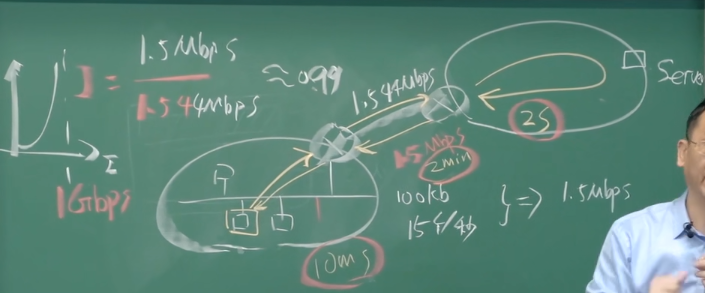 I = 1.5Mbps / 1.544Mbps ≈ 0.99
1
1
I
1Gbps
1.544Mbps
1.5Mbps
2min
Server
2S
100kb
15个/秒
} => 1.5Mbps
10ms